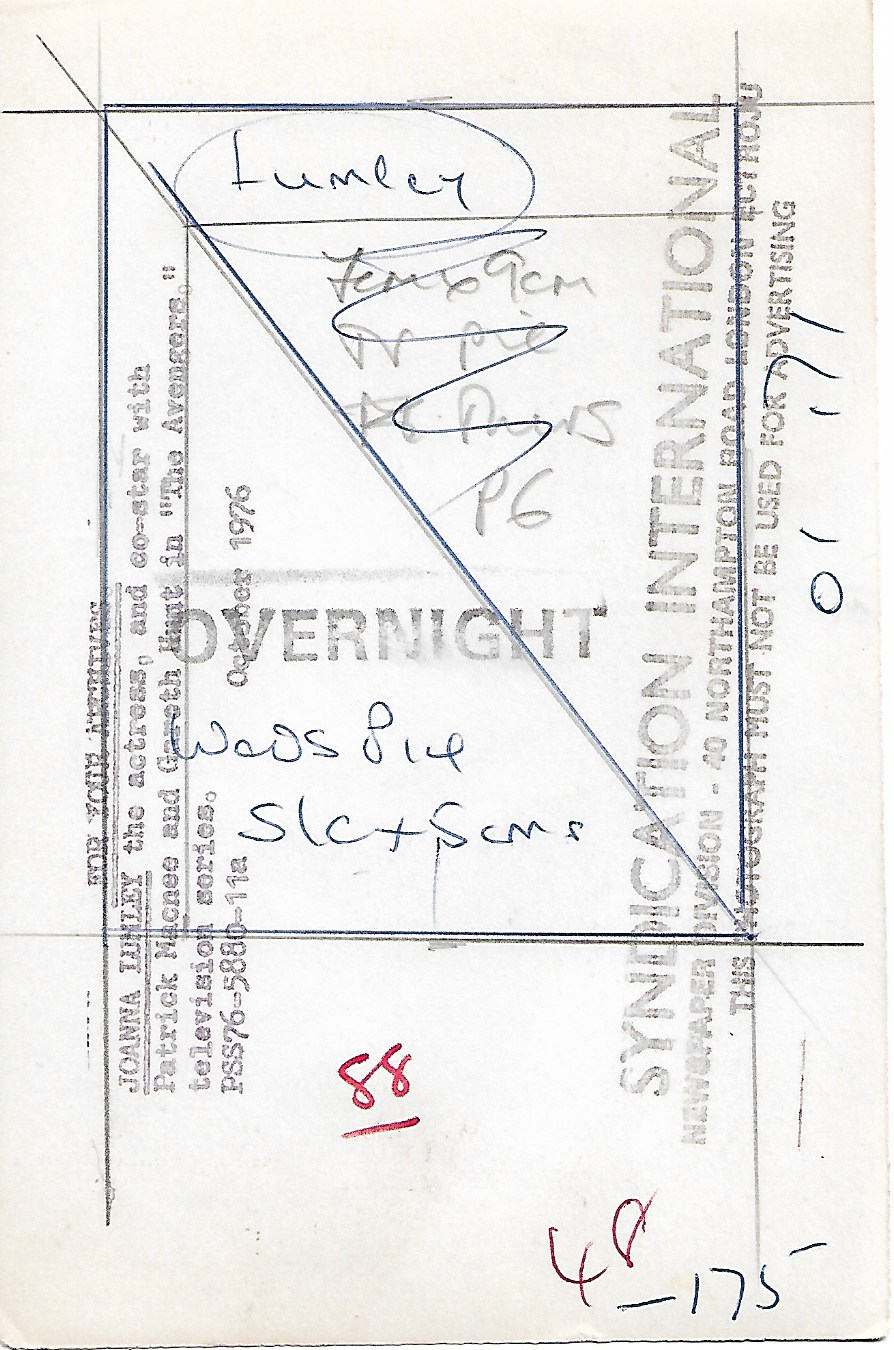 Lumley
7cm x 9cm
TV pic
P6
OVERNIGHT
Weds Pic
S/C + 5cms
88
48
-175
FOR YOUR ARCHIVES
JOANNA LUMLEY the actress, and co-star with
Patrick Macnee and Gareth Hunt in "The Avengers."
television series.
October 1976
PSS76-5880-11a
SYNDICATION INTERNATIONAL
NEWSPAPER DIVISION - 40 NORTHAMPTON ROAD LONDON EC1 R0JU
THIS PHOTOGRAPH MUST NOT BE USED FOR ADVERTISING